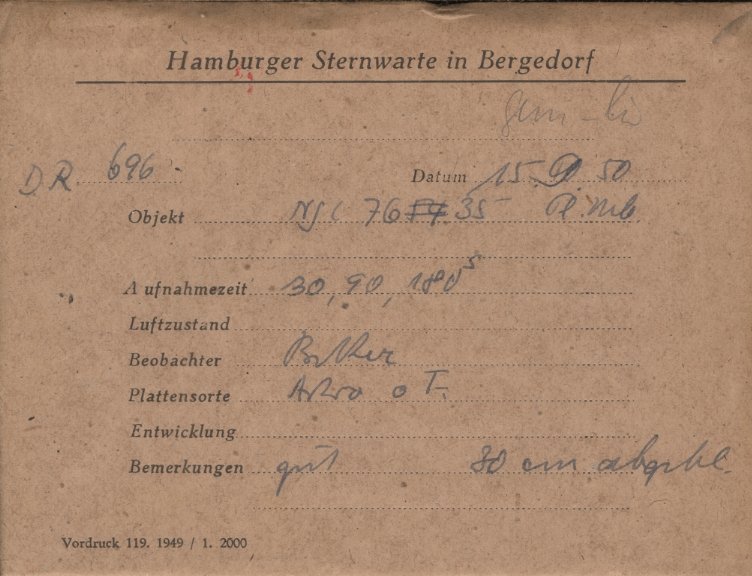 Hamburger Sternwarte in Bergedorf
D.R. 696 Datum 15. 9. 50
Objekt NGC 76 35 Pl. Neb
Aufnahmezeit 30, 90, 180 s
Luftzustand
Beobachter
Plattensorte Astro o T.
Entwicklung
Bemerkungen gut 30 cm abgebl.
Vordruck 119. 1949 / 1. 2000